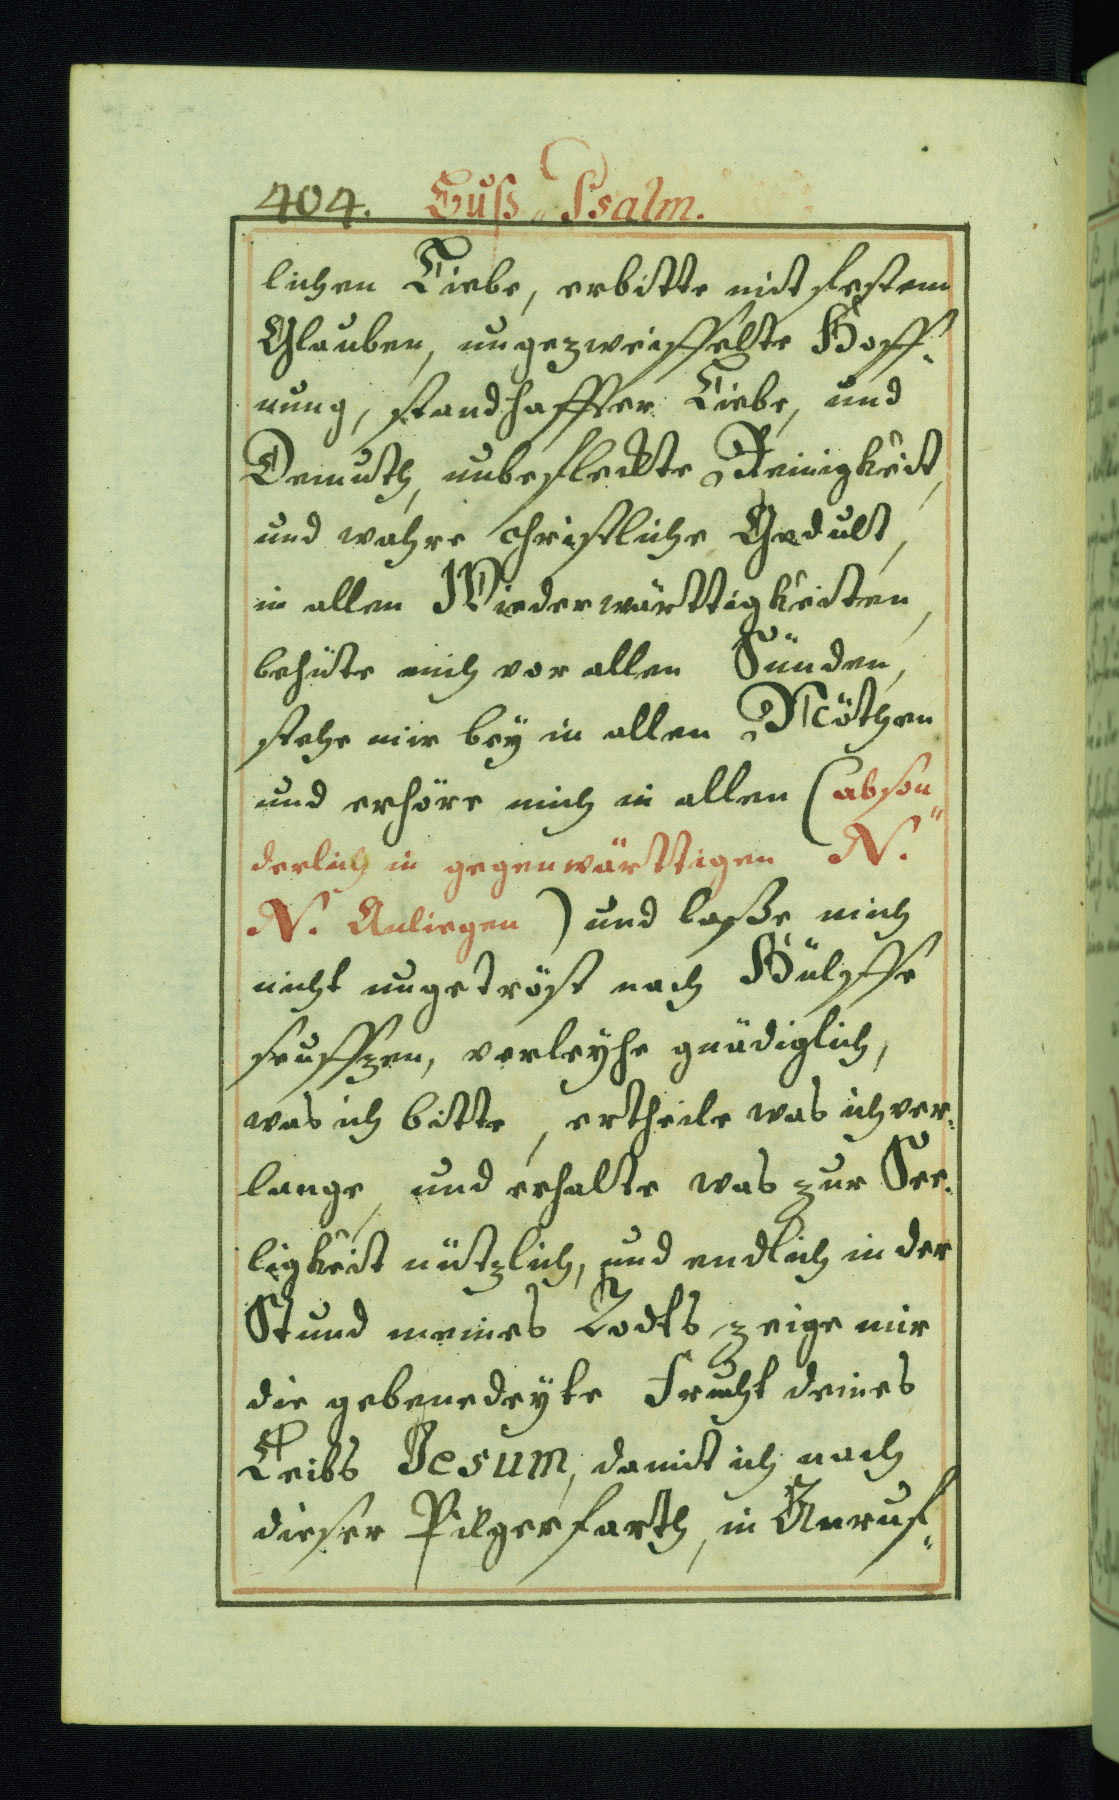 404. Buß-Psalm.
lichen Liebe, erbitte mit festem
Glauben, ungezweiffelte Hoff-
nung, standhaffter Liebe, und
Demuth, unbefleckte Reinigkeit,
und wahre christliche Gedult,
in allen Wiederwärttigkeiten,
behüte mich vor allen Sünden,
stehe mir beÿ in allen Nöthen
und erhöre mich in allen (abson-
derlich in gegenwärttigen N.
N. Anliegen) und laße mich
nicht ungetröst nach Hülffe
seuffzen, verleÿhe gnädiglich,
was ich bitte, ertheile was ich ver-
lange, und erhalte was zur See-
ligkeit nützlich, und endlich in der
Stund meines Todts zeige mir
die gebenedeÿte Frucht deines
Leibs Jesum, damit ich nach
dieser Pilgerfarth, in Anruf-